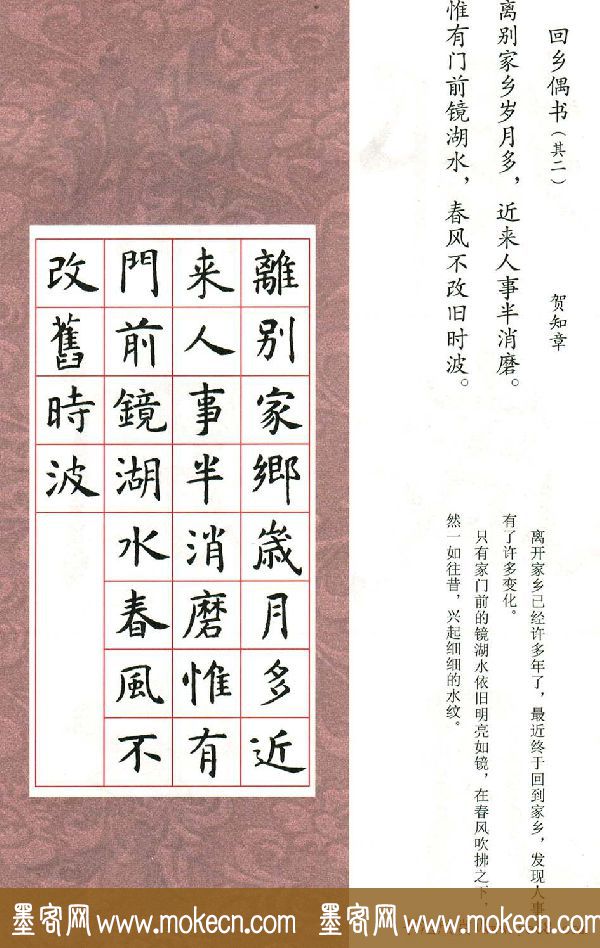 回乡偶书(其二)
贺知章
离别家乡岁月多，近来人事半消磨。
惟有门前镜湖水，春风不改旧时波。
离开家乡已经许多年了，最近终于回到家乡，发现人事
有了许多变化。
只有家门前的镜湖水依旧明亮如镜，在春风吹拂之下，
然一如往昔，兴起细细的水纹。
離别家鄉歲月多近
来人事半消磨惟有
門前鏡湖水春風不
改舊時波
墨客网 www.mokecn.com 墨客网 www.mokecn.com